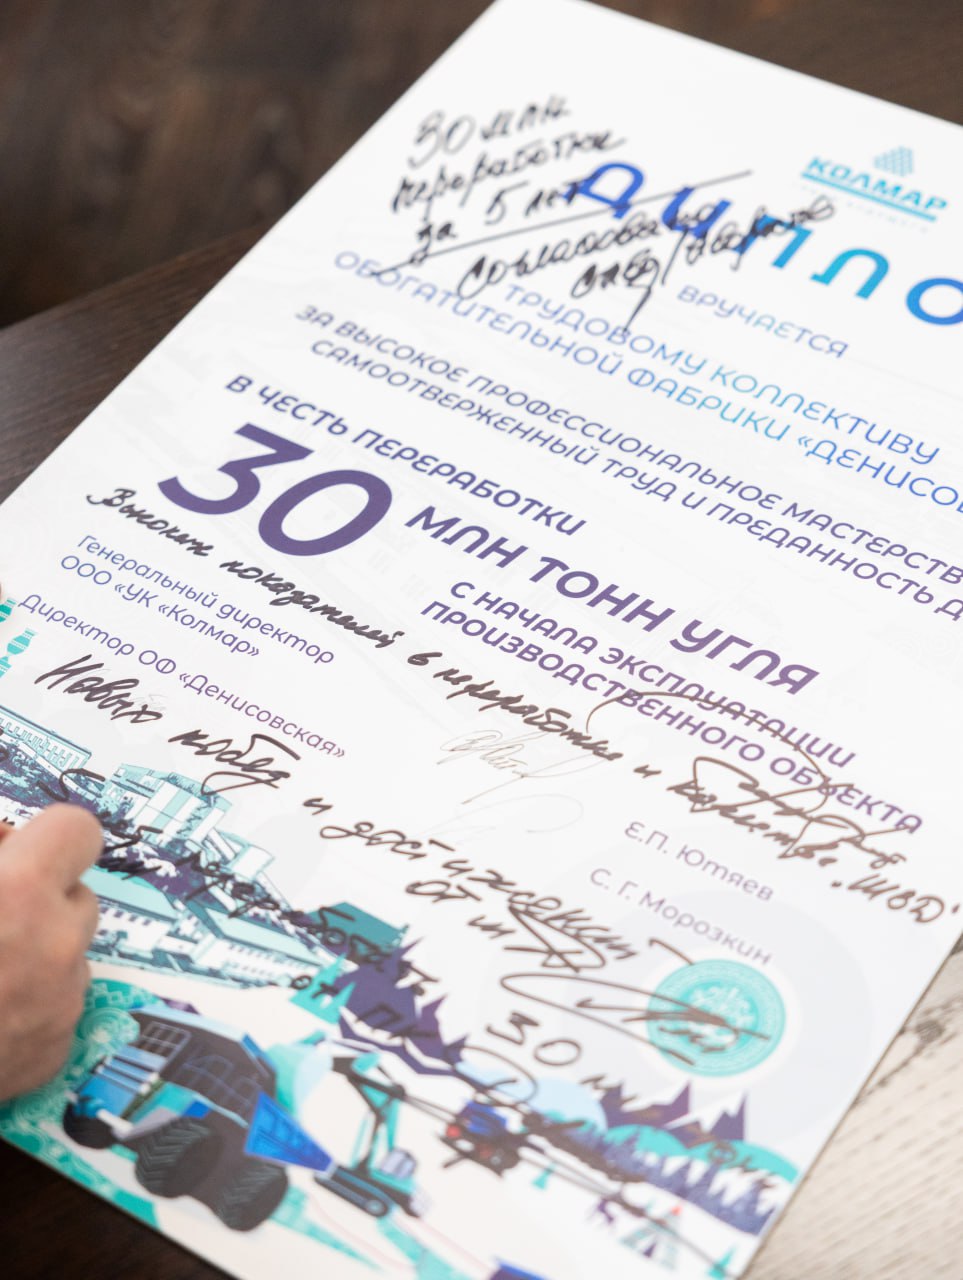 КОЛМАР
ДИПЛО
30 млн
переработки
за 5 лет
ВРУЧАЕТСЯ
ТРУДОВОМУ КОЛЛЕКТИВУ
ОБОГАТИТЕЛЬНОЙ ФАБРИКИ «ДЕНИСОВ
ЗА ВЫСОКОЕ ПРОФЕССИОНАЛЬНОЕ МАСТЕРСТВ
САМООТВЕРЖЕННЫЙ ТРУД И ПРЕДАННОСТЬ Д
В ЧЕСТЬ ПЕРЕРАБОТКИ
30 МЛН ТОНН УГЛЯ
С НАЧАЛА ЭКСПЛУАТАЦИИ
ПРОИЗВОДСТВЕННОГО ОБЪЕКТА
Высоких показателей в переработке и
Генеральный директор
ООО «УК «Колмар»
Е.П. Ютяев
Директор ОФ «Денисовская»
С. Г. Морозкин
Новых побед и достижений
от
30